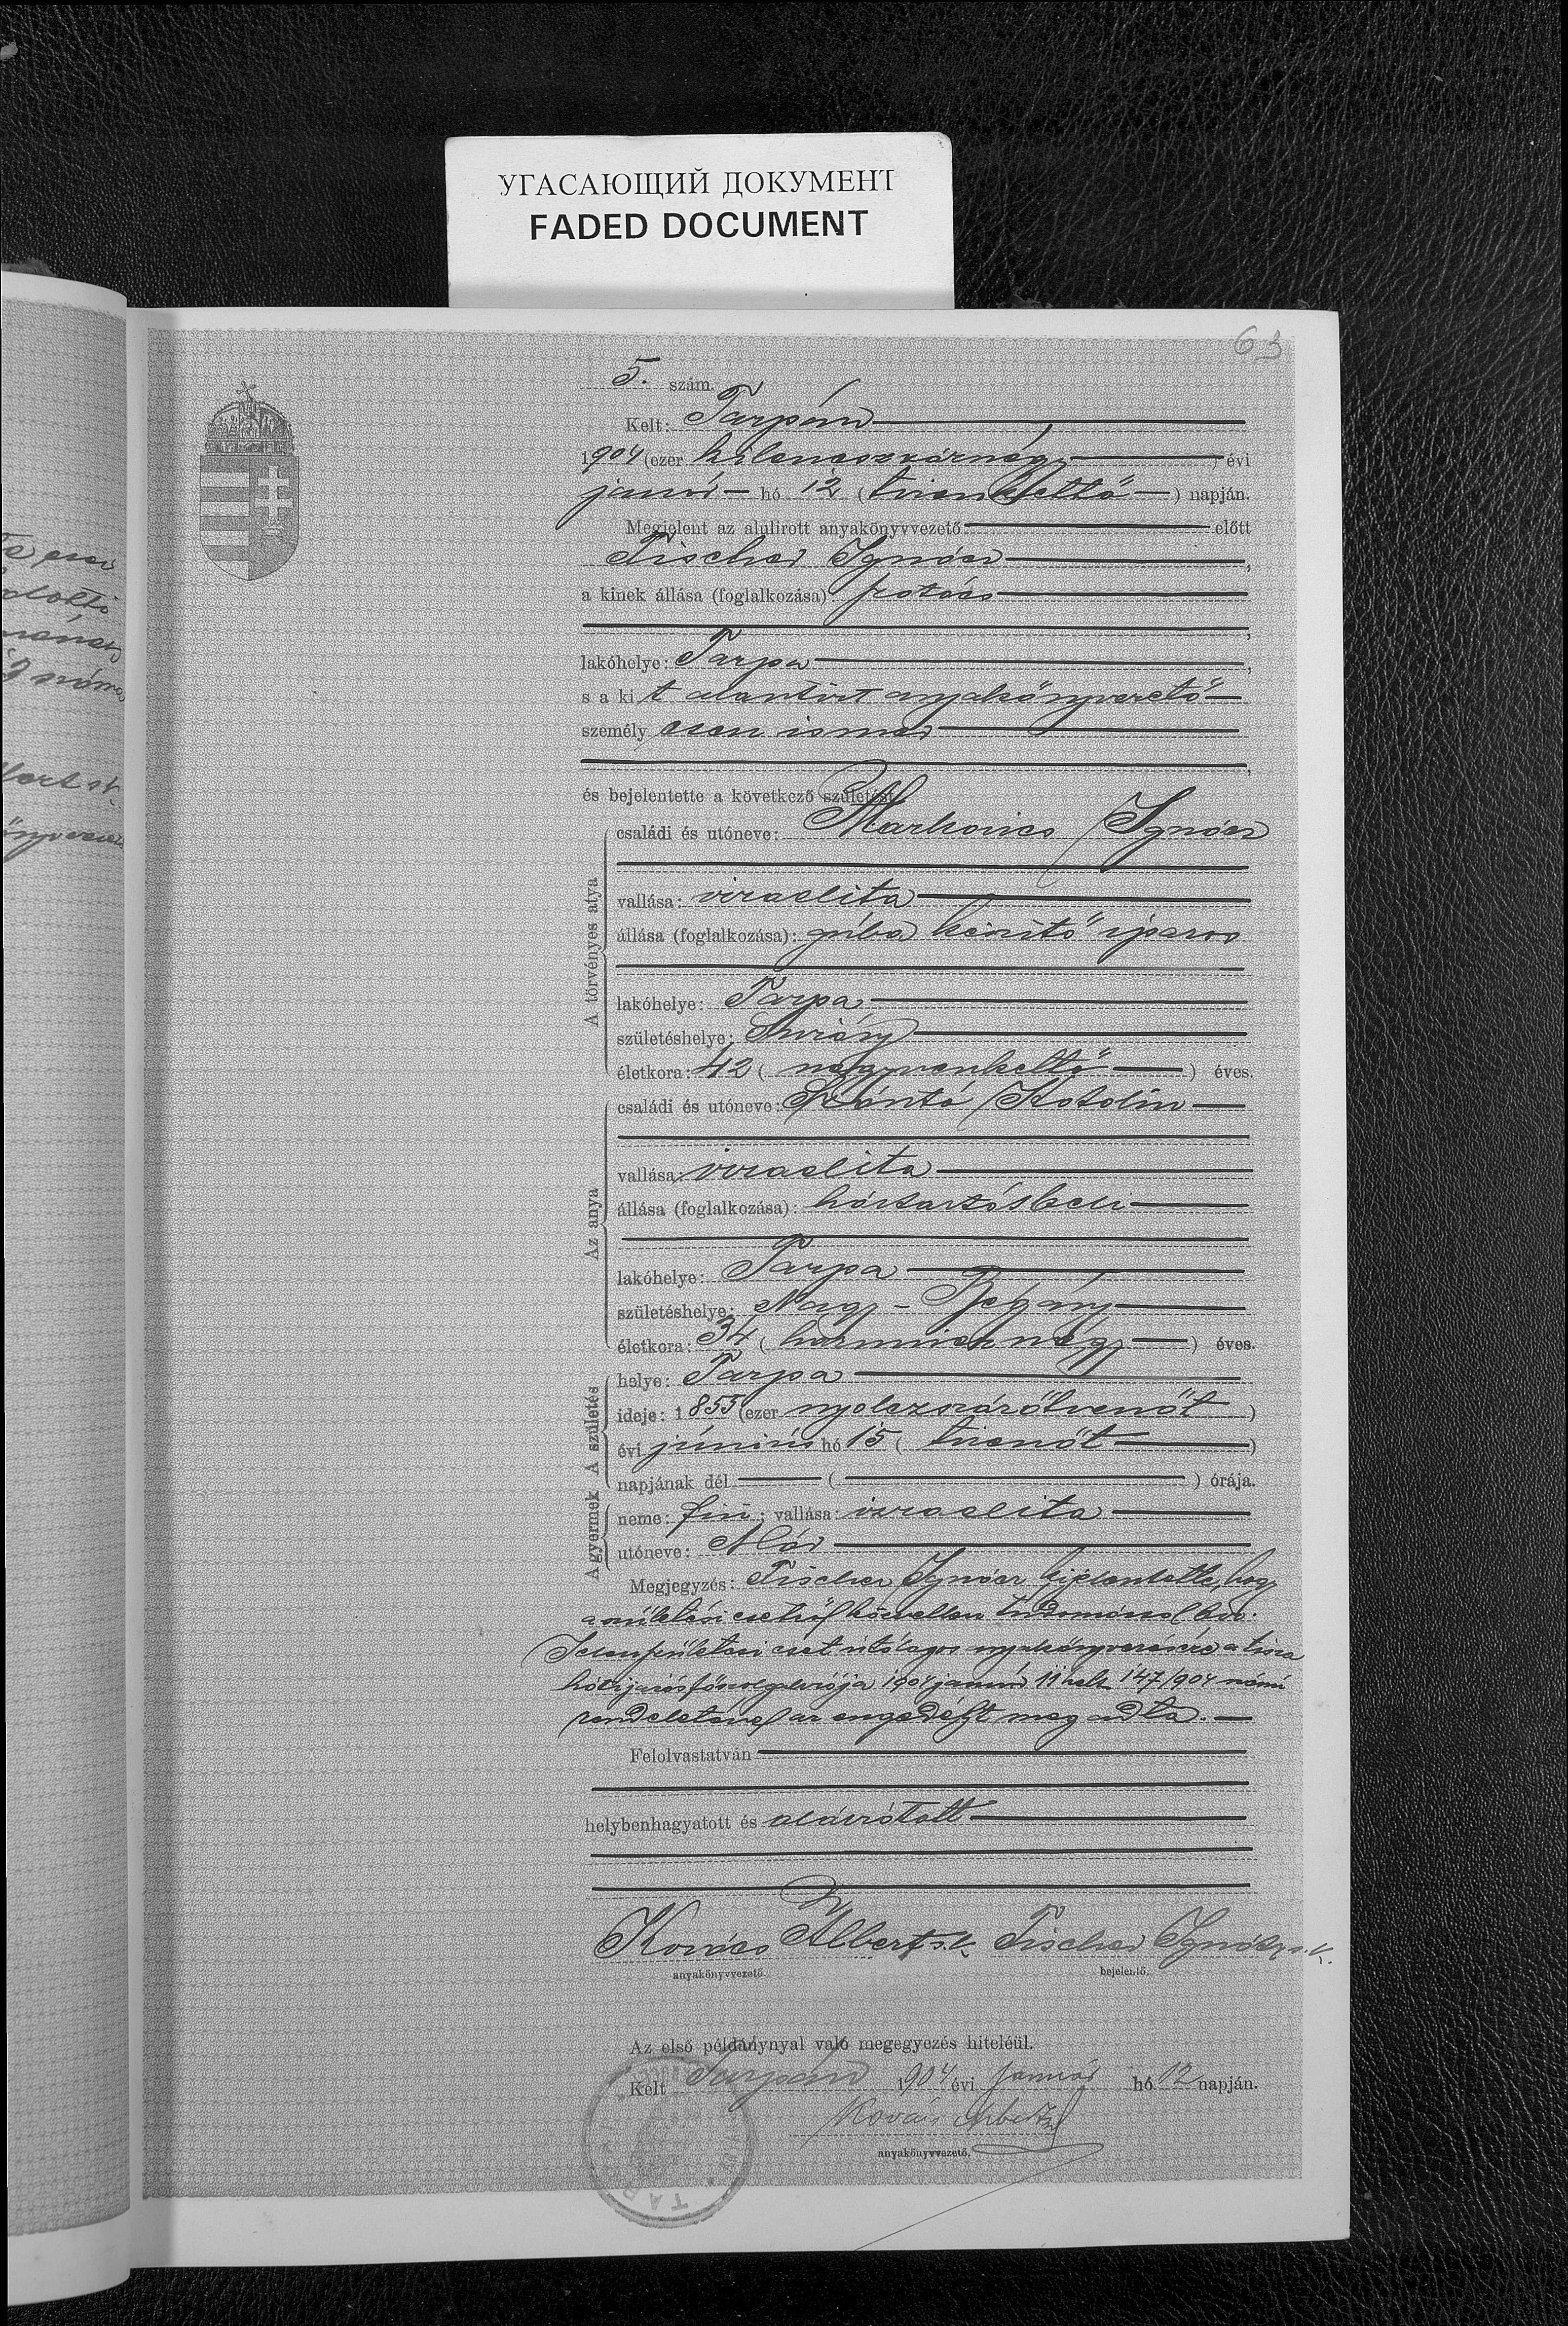 УГАСАЮЩИЙ ДОКУМЕНТ
FADED DOCUMENT
63
5. szám.
Kelt: Tarpán
1904 (ezer kilenczszáznégy) évi
január hó 12 (tizenkettő) napján.
Megjelent az alulirott anyakönyvvezető előtt
Fischer Ignácz,
a kinek állása (foglalkozása):
lakóhelye: Tarpa,
s a kit alantirt anyakönyvvezető
személyesen ismer
és bejelentette a következő születést:
A törvényes atya
családi és utóneve: Markovics Ignácz
vallása: izraelita
állása (foglalkozása): guba készitő iparos
lakóhelye: Tarpa
születéshelye: Surány
életkora: 42 (negyvenkettő) éves.
Az anya
családi és utóneve: Szántó Katalin
vallása: izraelita
állása (foglalkozása): háztartásbeli
lakóhelye: Tarpa
születéshelye: Nagy-Begány
életkora: 34 (harmincznégy) éves.
A születés
helye: Tarpa
ideje: 1855 (ezer nyolczszázötvenöt)
évi június hó 15 (tizenöt)
napjának dél ( ) órája.
A gyermek
neme: fiú; vallása: izraelita
utóneve: Mór
Megjegyzés: Fischer Ignácz kijelentette, hogy
a születési esetről közvetlen tudomással bir.
Jelen születési eset utólagos anyakönyvezésére a tisza
háti járás főszolgabirója 1904 január 11 kelt 147/1904 számú
rendeletével az engedélyt megadta.
Felolvastatván
helybenhagyatott és aláiratott
Kovács Albert s.k. Fischer Ignácz s.k.
anyakönyvvezető. bejelentő.
Az első példánynyal való megegyezés hiteléül.
Kelt Tarpán 1904 évi január hó 12 napján.
Kovács Albert
anyakönyvvezető.